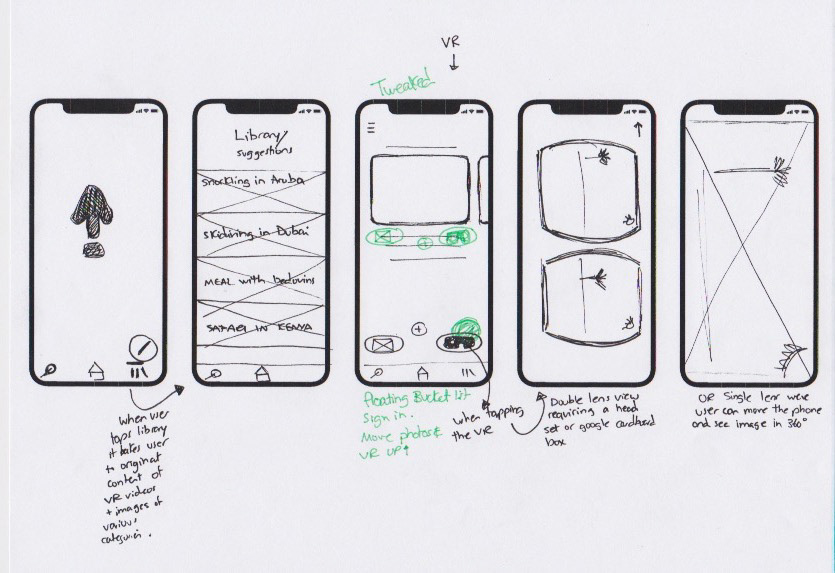 VR
Tweaked
Library/
suggestions
snorkling in Aruba
skidiving in Dubai
MEAL with bedouins
SAFARI IN KENYA
When user
taps library
it takes user
to original
content of
VR videos
+ images of
various
categories.
floating Bucket list
sign in.
Move photos &
VR UP↑
when tapping
the VR
Double lens view
requiring a head
set or google cardboard
box
OR Single lens were
user can move the phone
and see image in 360°